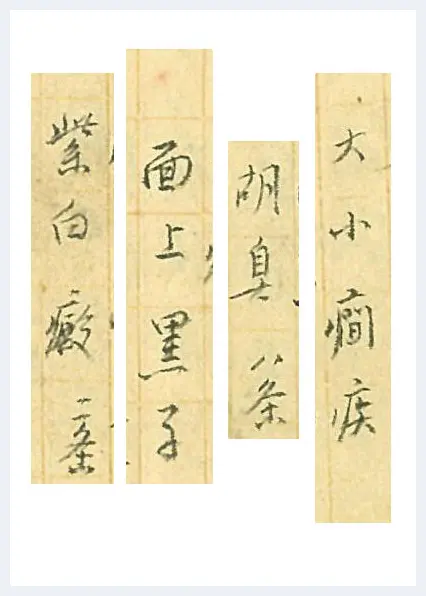 大小癇疾
胡臭八条
面上黒子
紫白癜二条